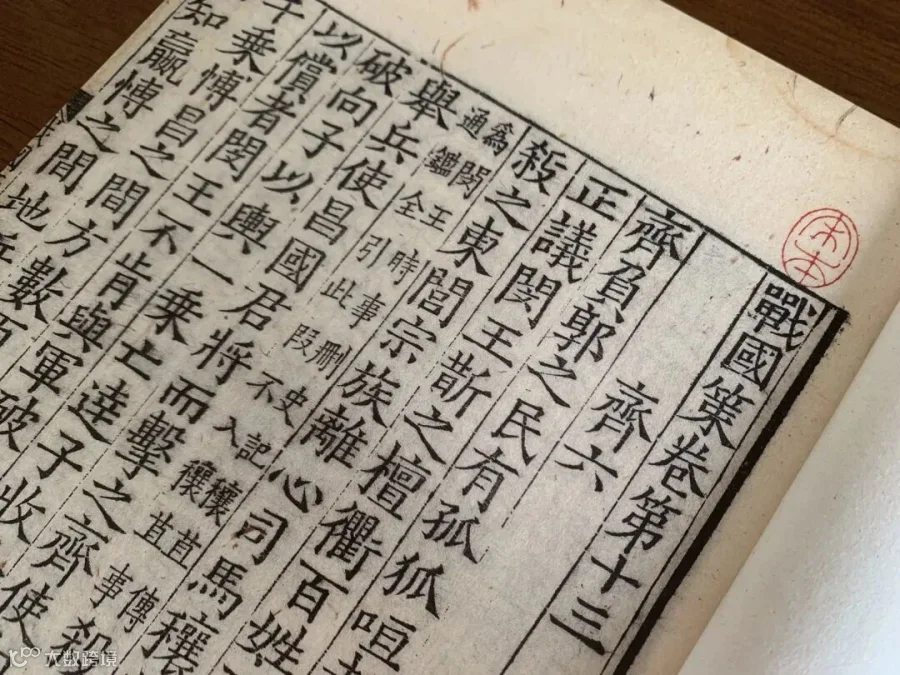 戰國策卷第十三
齊六
齊負郭之民有孤狐咺
正議閔王斮之檀衢百姓
殺之東閭宗族離心司馬穰
爲閔王時事刪史記穰苴傳
通鑑全引此段不入穰苴事
舉兵使昌國君將而擊之齊使
破向子以輿一乘亡達子收
以償者閔王不肯與軍破
千乘愽昌之間方數百
知嬴愽之間地
大数跨境